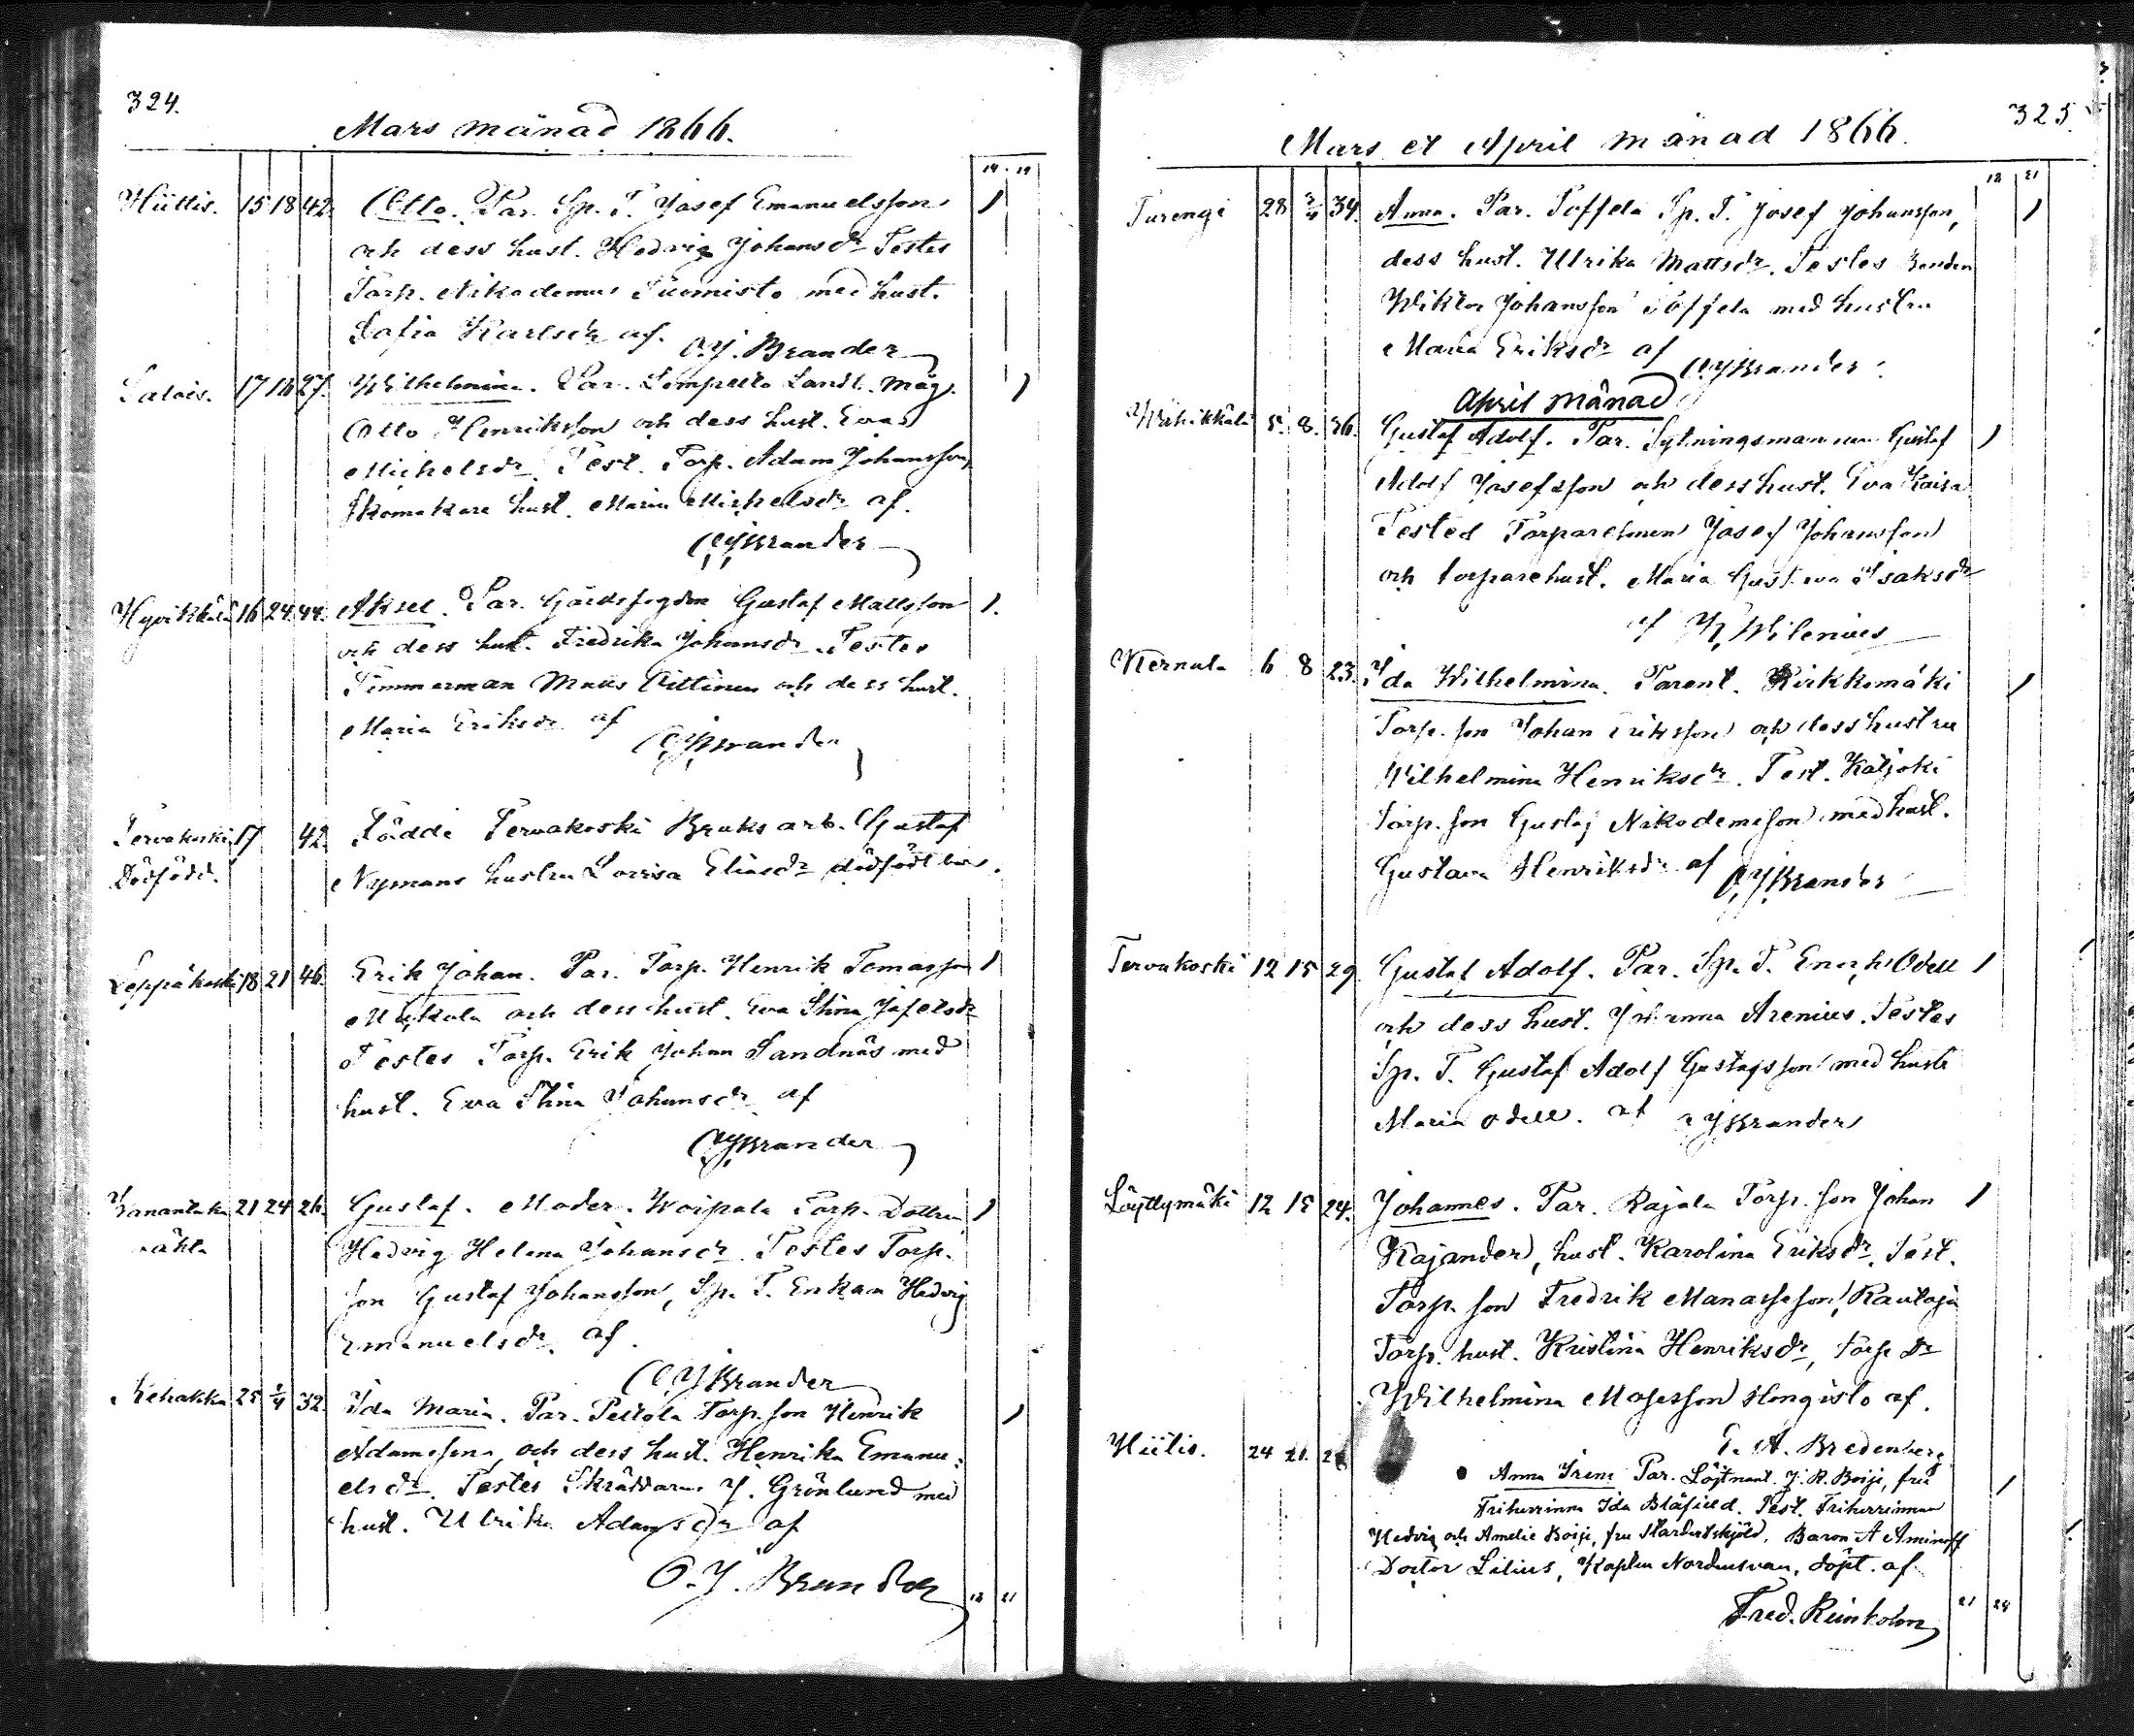 324.
Mars månad 1866.
19 19
Hiittis. 15 18 42. Otto. Par. Sp. T. Josef Emanuelsson 1
och dess hust. Hedvig Johansdr Testes
Torp. Nikodemus Tuomisto med hust.
Sofia Karlsdr af. O.J. Brander
17 18 27. Wilhelmina. Par. Landt. måg. 1
Otto Henriksson och dess hust. Eva
Michelsdr. Test. Torp. Adam Johansson,
Skomakare hust. Maria Michelsdr af.
OJBrander
Hyvikkälä 16 24 44. Aksel. Par. Gårdsfogden Gustaf Mattsson 1.
och dess hust. Fredrika Johansdr. Testes
Timmerman och dess hust.
Maria Eriksdr af
OJBrander
Tervakoski 17 42. Födde Tervakoski Bruks arb. Gustaf
Dödfödd. Nymans hustru Lovisa Eliasdr dödfödt barn.
Leppäkoski 18 21 46. Erik Johan. Par. Torp. Henrik Tomasson 1
och dess hust. Eva Stina
Testes Torp. Erik Johan Sandnäs med
hust. Eva Stina Johansdr af
OJBrander
21 24 26. Gustaf. Moder. Woipala Torp. Dottren 1
Hedvig Helena Johansdr. Testes Torp.
son Gustaf Johansson, Sp. T. Enkan Hedvig
Emanuelsdr. af.
OJBrander
25 2/4 32. Ida Maria. Par. Torp. son Henrik 1
Adamsson, och dess hust. Henrika Emanu-
elsdr. Testes Skräddaren J. Grönlund med
hust. Ulrika Adamsdr af
O.J. Brander
18 21
325.
Mars et April månad 1866.
18 21
Turengi 28 2/4 34. Anna. Par. Toffela Sp. T. Josef Johansson, 1
dess hust. Ulrika Mattsdr. Testes Bonden
Wiktor Johansson Toffela med hustru
Maria Eriksdr af OJBrander.
April månad
5. 8. 36. Gustaf Adolf. Par. Sytningsmannen Gustaf 1
Adolf Josefsson och dess hust. Eva Kaisa
Testes Torparesonen Josef Johansson
och torparehust. Maria Gustava Isaksdr
af K. Wilenius
Kernala 6 8 23. Ida Wilhelmina. Parent. Kirkkomäki 1
Torp. son Johan Eriksson och dess hustru
Wilhelmina Henriksdr. Test. Katjoki
Torp. son Gustaf Nikodemsson med hust.
Gustava Henriksdr af OJBrander
Tervakoski 12 15 29. Gustaf Adolf. Par. Sp. T. Odell 1
och dess hust. Johanna Arenius. Testes
Sp. T. Gustaf Adolf Gustafsson med hust
Maria Odell. af OJBrander
Löyttymäki 12 15 24. Johannes. Par. Rajala Torp. son Johan 1
Kajander, hust. Karolina Eriksdr. Test.
Torp. son Fredrik Manasseson, Rautoja
Torp. hust. Kristina Henriksdr, Torp. Dr
Wilhelmina Mosesson Hongisto af.
G. A. Bredenberg
Hiitis. 24 21. Anna Irene Par. Löjtnant. J. R. Boije, fru 1
Friherrinna Ida Blåfield. Test. Friherrinnan
Hedvig och Amelie Boije, fru Stardutskjöld, Baron A Aminoff
Doctor Lilius, Kaplan Nordensvan, döpt. af
Fred. Reinholm
21 24